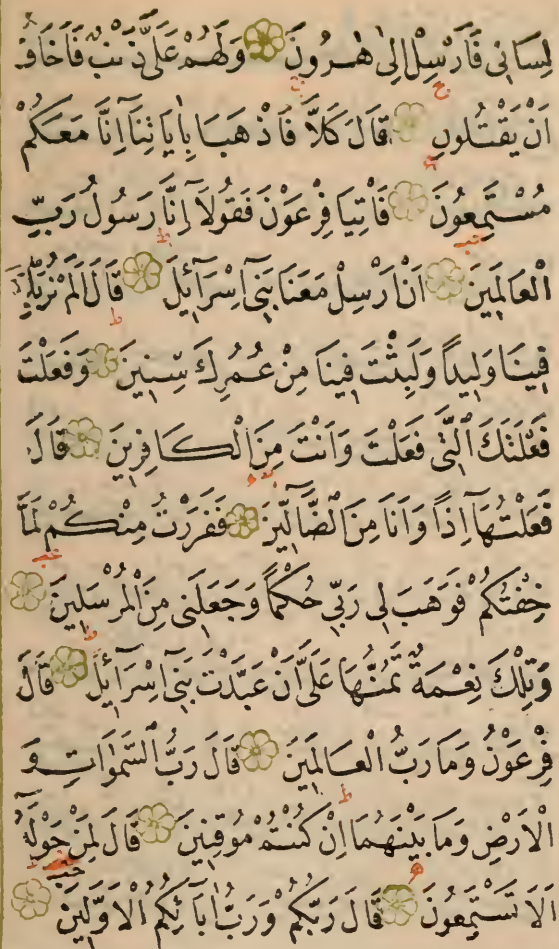 لِسَانِى فَاَرْسِلْ اِلٰى هٰرُونَ وَلَهُمْ عَلَىَّ ذَنْبٌ فَاَخَافُ
اَنْ يَقْتُلُونِ قَالَ كَلَّا فَاذْهَبَا بِاٰيَاتِنَٓا اِنَّا مَعَكُمْ
مُسْتَمِعُونَ فَأْتِيَا فِرْعَوْنَ فَقُولَٓا اِنَّا رَسُولُ رَبِّ
الْعَالَمِينَ اَنْ اَرْسِلْ مَعَنَا بَنِٓى اِسْرَٓائِلَ قَالَ اَلَمْ نُرَبِّكَ
فِينَا وَلِيدًا وَلَبِثْتَ فِينَا مِنْ عُمُرِكَ سِنِينَ وَفَعَلْتَ
فَعْلَتَكَ الَّتِى فَعَلْتَ وَاَنْتَ مِنَ الْكَافِرِينَ قَالَ
فَعَلْتُهَٓا اِذًا وَاَنَا مِنَ الضَّٓالِّينَ فَفَرَرْتُ مِنْكُمْ لَمَّا
خِفْتُكُمْ فَوَهَبَ لِى رَبِّى حُكْمًا وَجَعَلَنِى مِنَ الْمُرْسَلِينَ
وَتِلْكَ نِعْمَةٌ تَمُنُّهَا عَلَىَّ اَنْ عَبَّدْتَ بَنِٓى اِسْرَٓائِلَ قَالَ
فِرْعَوْنُ وَمَا رَبُّ الْعَالَمِينَ قَالَ رَبُّ السَّمٰوَاتِ وَ
الْاَرْضِ وَمَا بَيْنَهُمَا اِنْ كُنْتُمْ مُوقِنِينَ قَالَ لِمَنْ حَوْلَهُٓ
اَلَا تَسْتَمِعُونَ قَالَ رَبُّكُمْ وَرَبُّ اٰبَٓائِكُمُ الْاَوَّلِينَ